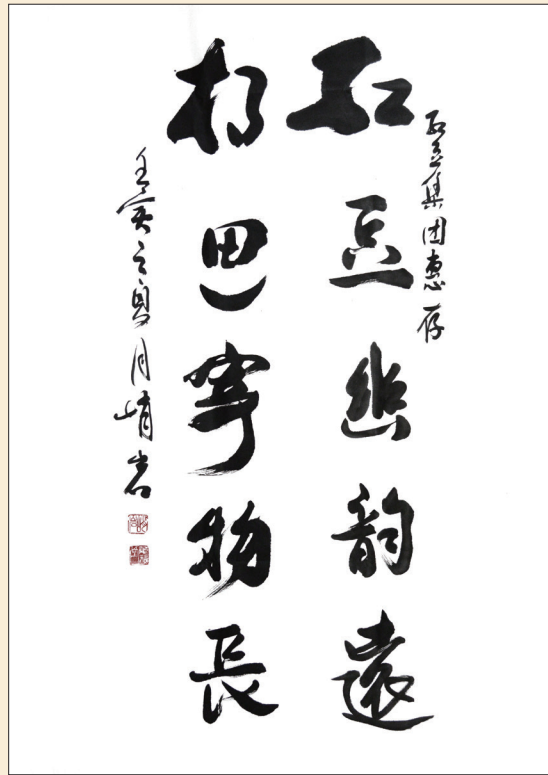 红豆集团惠存
红豆幽韵遠
相思寄物長
壬寅之夏月峭岩